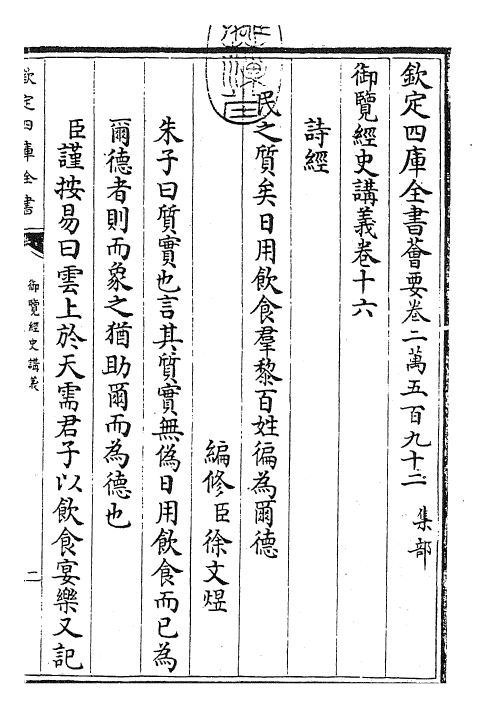 欽定四庫全書薈要卷二萬五百九十二　集部
御覽經史講義卷十六
詩經
民之質矣日用飲食羣黎百姓徧為爾德
編修臣徐文煜
朱子曰質實也言其質實無偽日用飲食而已為
爾德者則而象之猶助爾而為德也
臣謹按易曰雲上於天需君子以飲食宴樂又記
欽定四庫全書
御覽經史講義